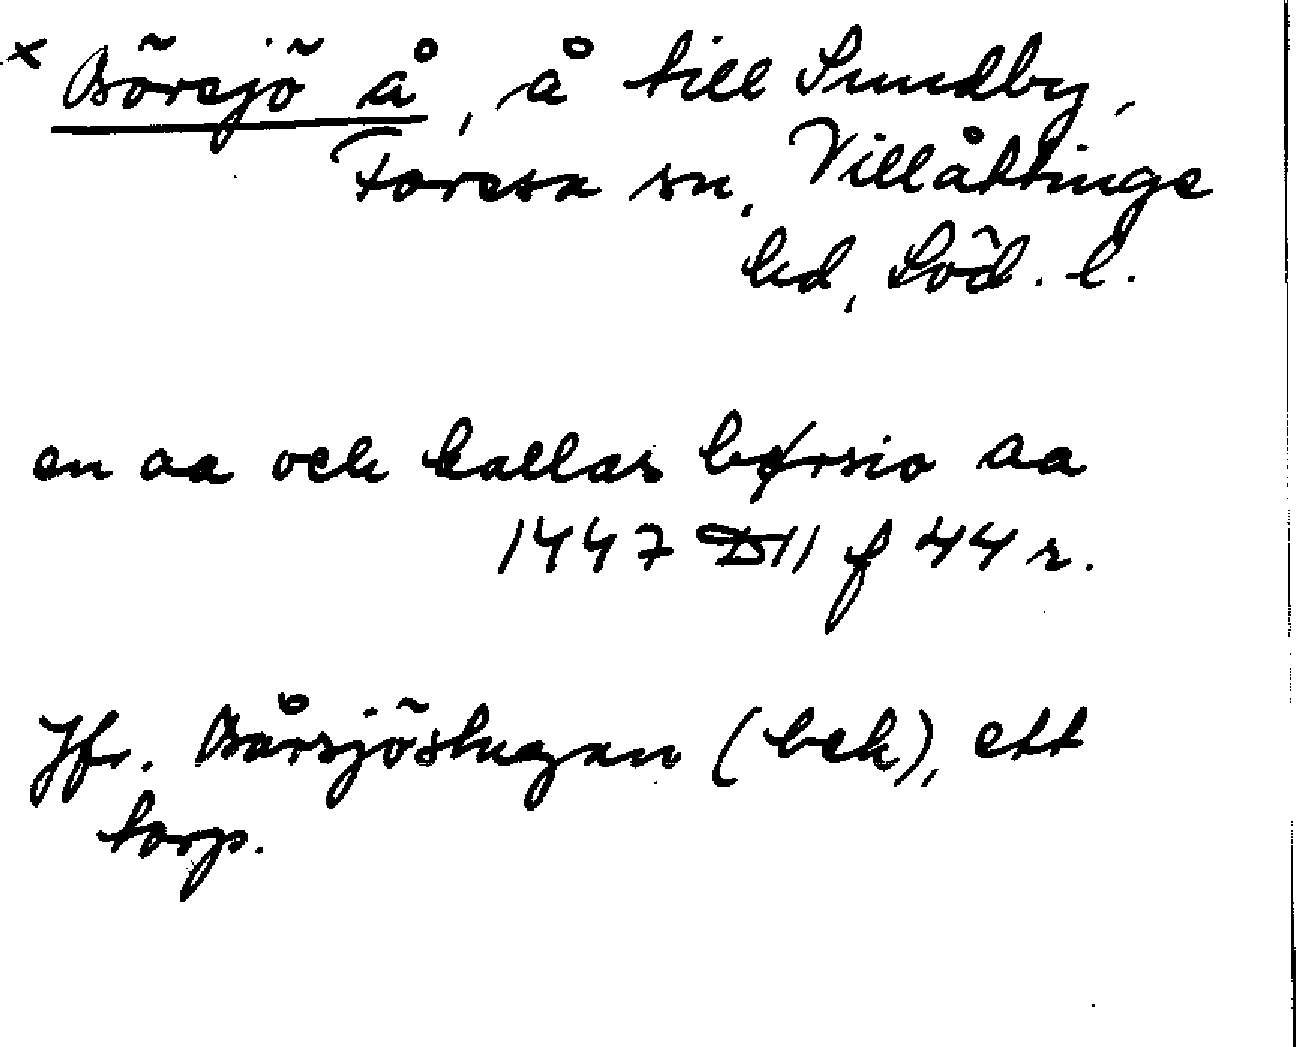 × Börsjö å, å till Sundby,
Forssa sn, Villåttinge
hd, Söd. l.
en aa och kallas børsio aa
1447 D11 f 44 r.
Jfr. Bårsjöstugan (bek), ett
torp.